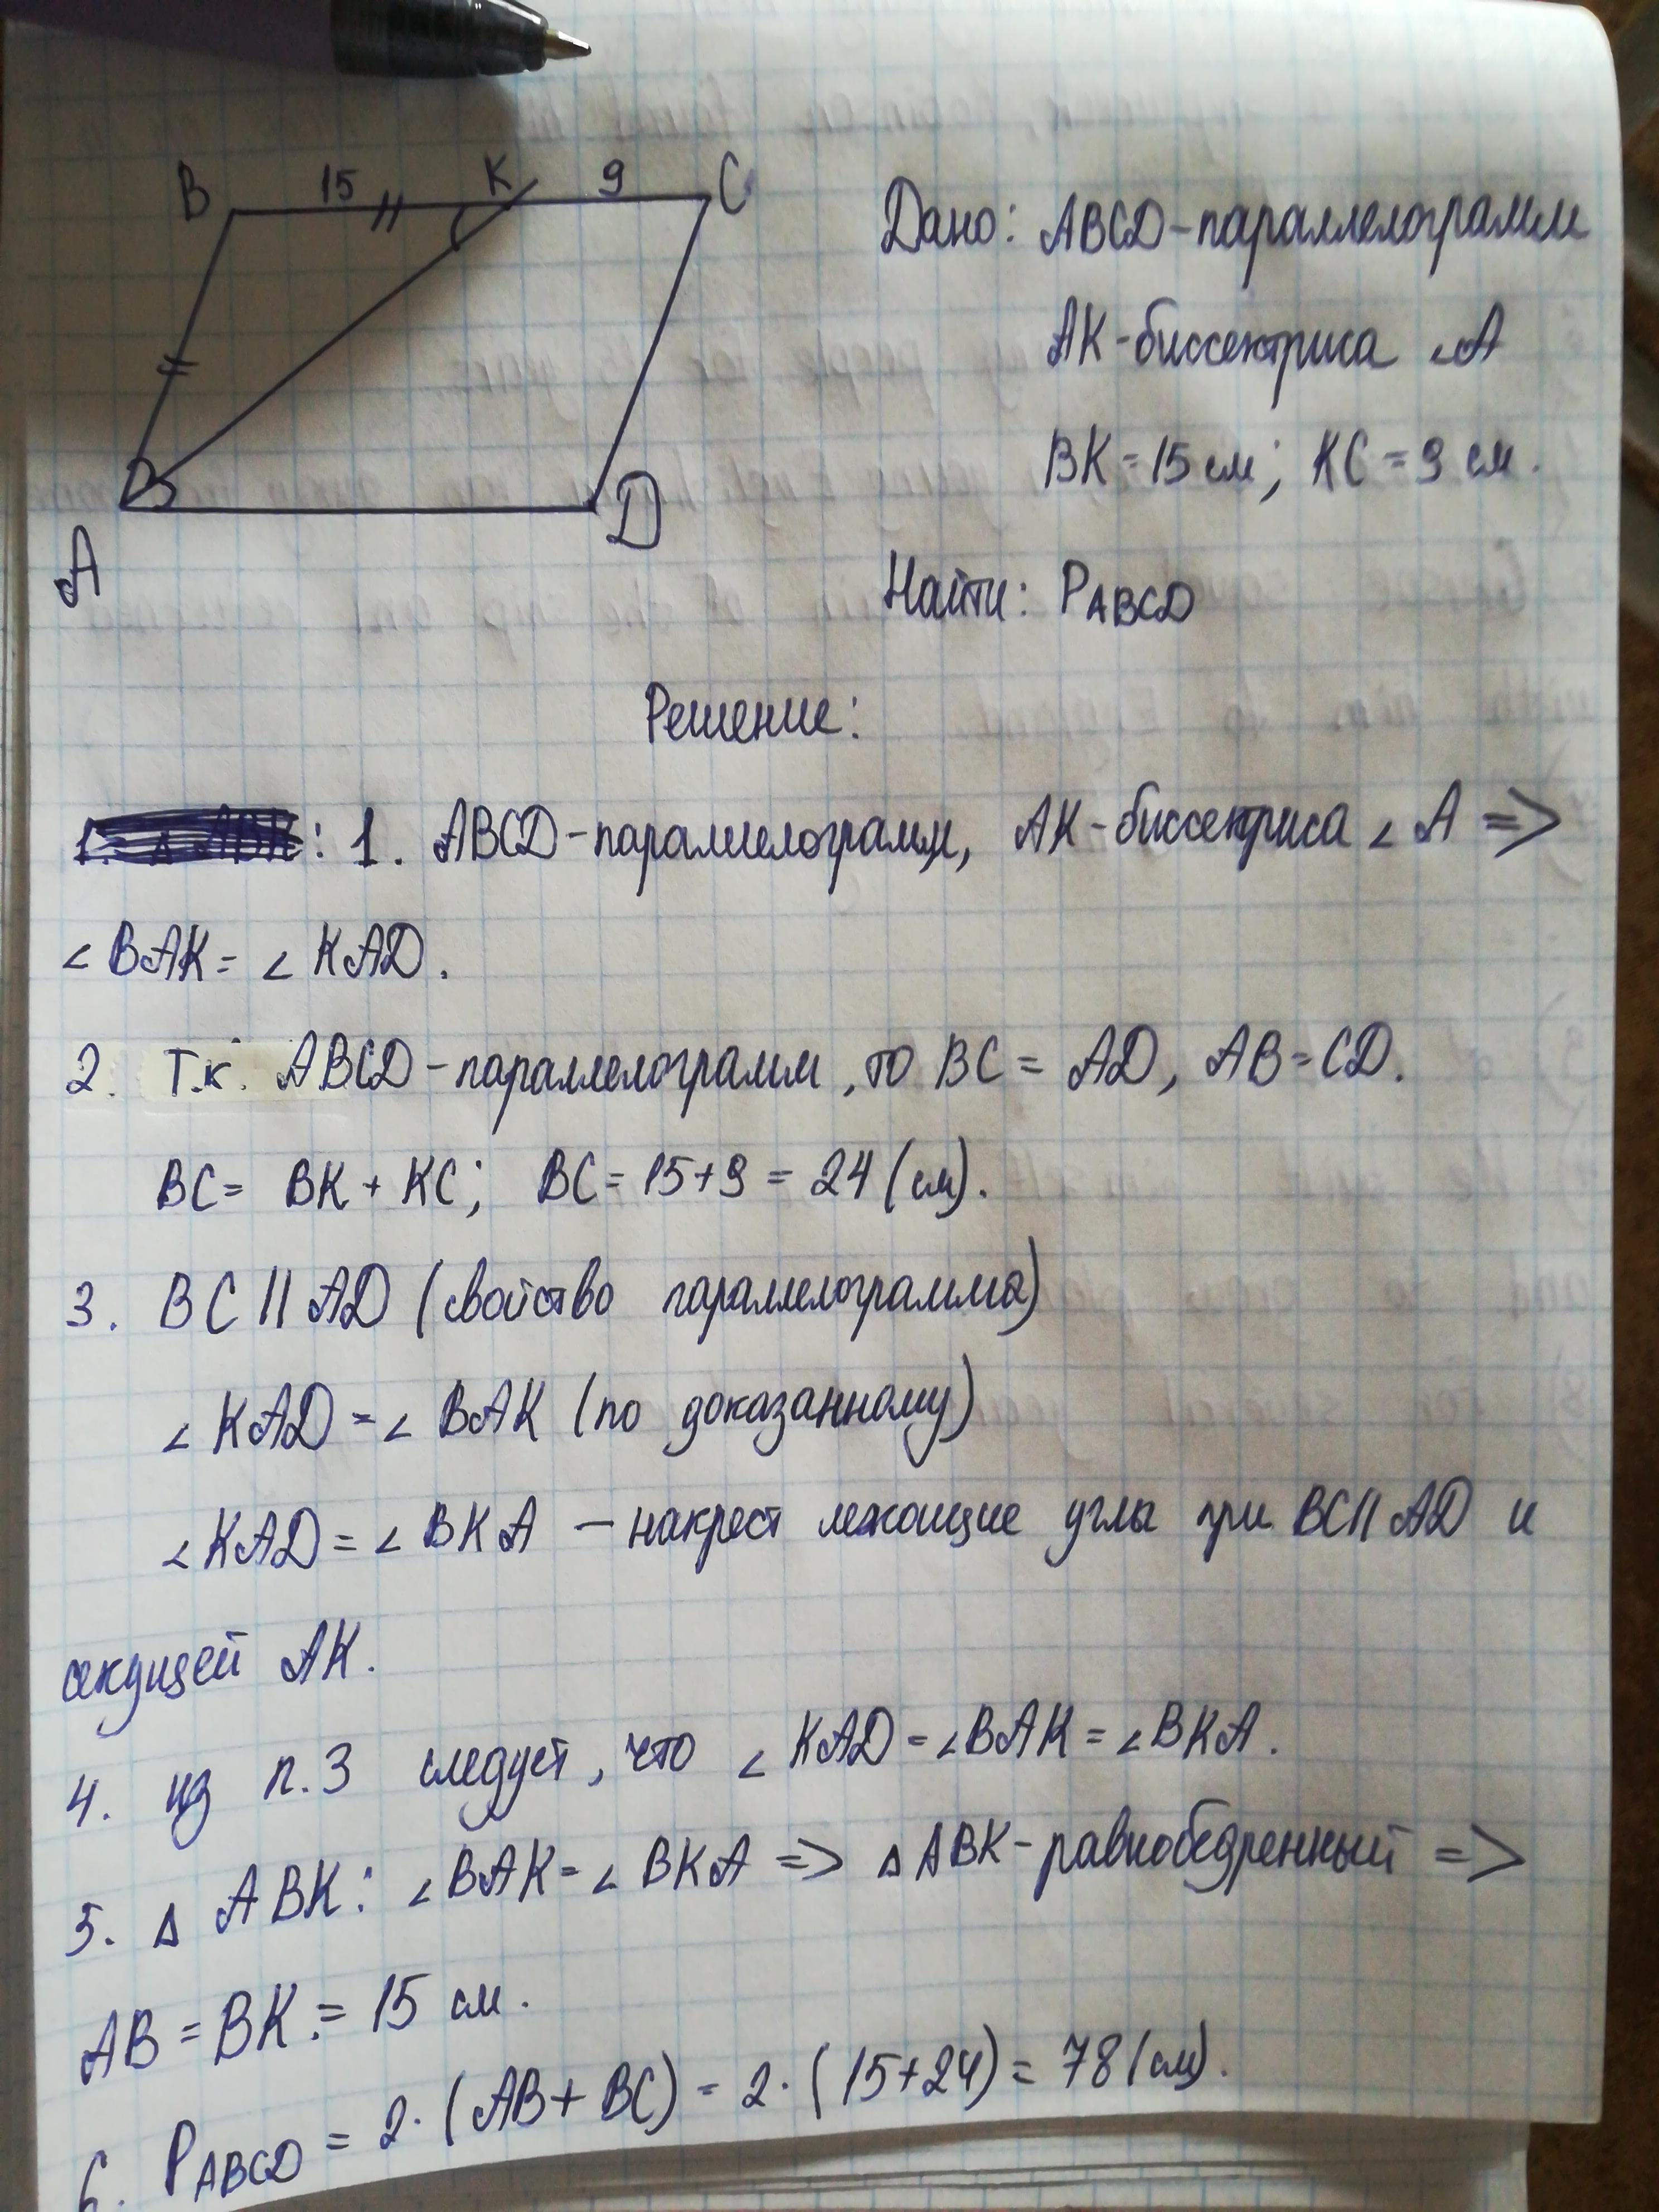 B 15 K 9 C
A D
Дано: ABCD-параллелограмм
AK-биссектриса ∠A
BK=15 см; KC=9 см.
Найти: PABCD
Решение:
1. △ ABK: 1. ABCD-параллелограмм, AK-биссектриса ∠A =>
∠BAK=∠KAD.
2. Т.к. ABCD-параллелограмм, то BC = AD, AB=CD.
BC= BK + KC; BC=15+9=24 (см).
3. BC || AD (свойство параллелограмма)
∠KAD=∠BAK (по доказанному)
∠KAD=∠BKA — накрест лежащие углы при BC||AD и
секущей AK.
4. из п.3 следует, что ∠KAD=∠BAK=∠BKA.
5. △ ABK: ∠BAK=∠BKA => △ABK-равнобедренный =>
AB=BK=15 см.
6. PABCD = 2·(AB+BC)=2·(15+24)=78(см).